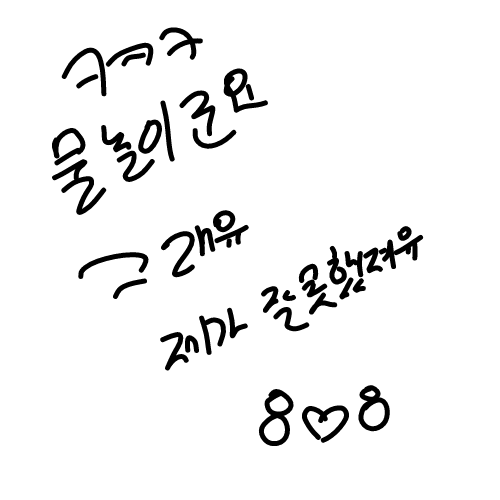 ㅋㅋㅋ
물놀이군요
그래유
제가 잘못했져유
8♡8